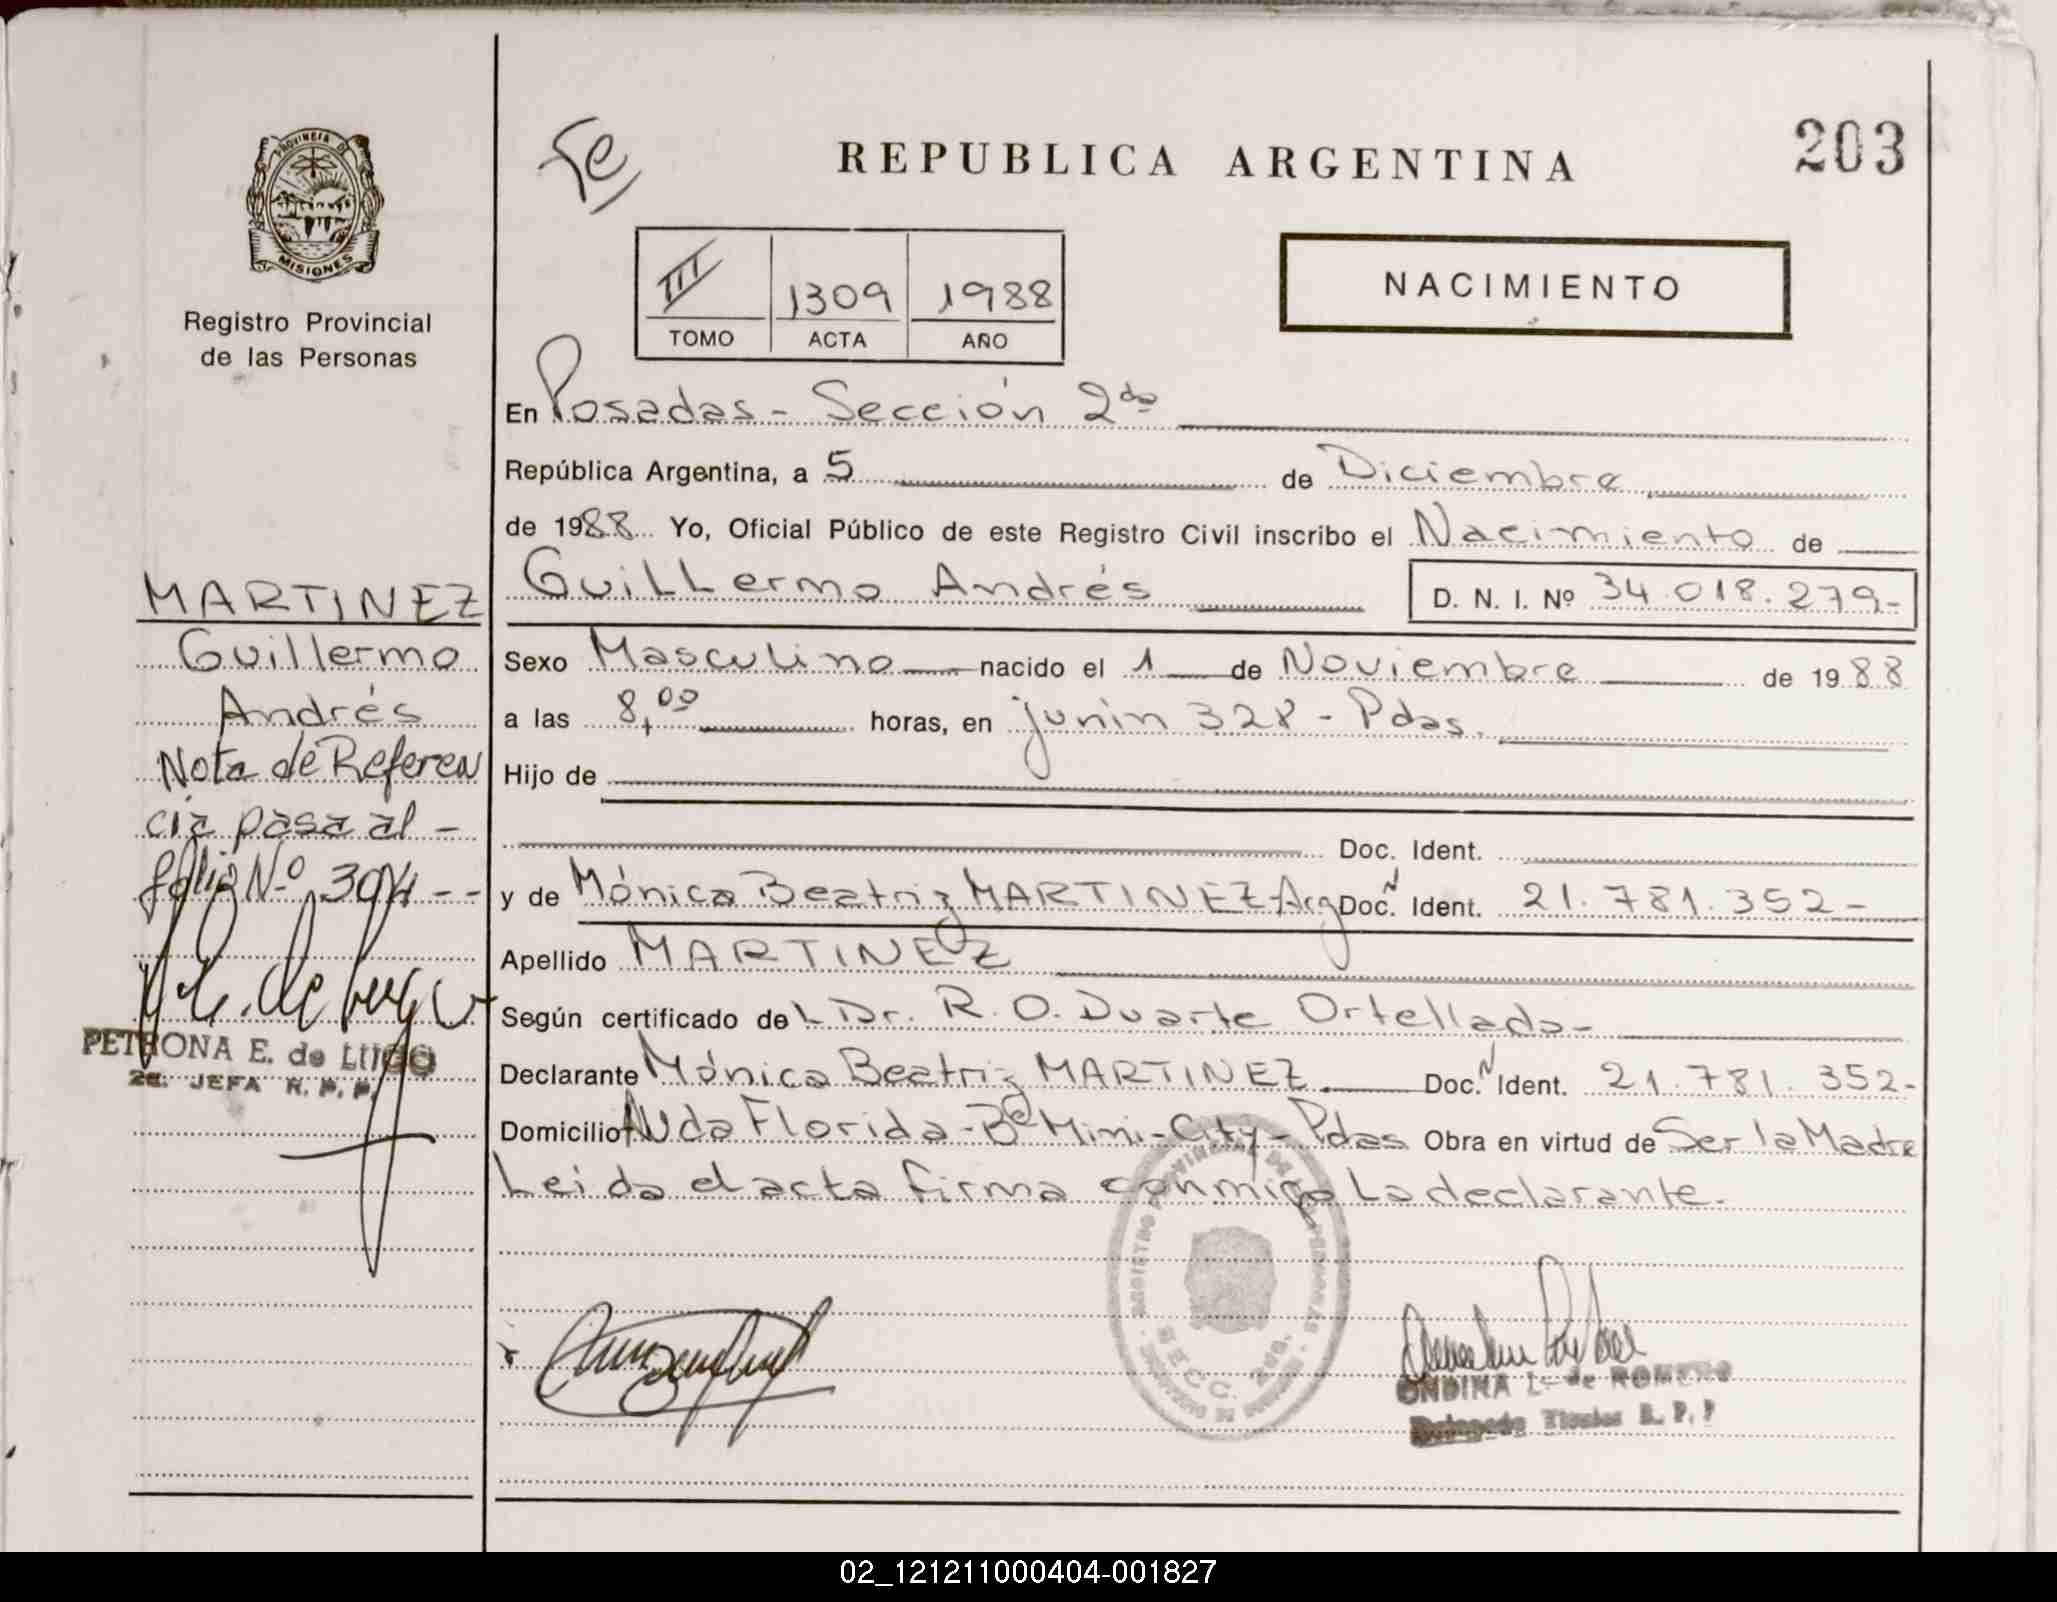 PROVINCIA DE
MISIONES
Registro Provincial
de las Personas
MARTINEZ
Guillermo
Andrés
Nota de Referen
cia pasa al -
folio Nº 304 - -
PETRONA E. de LUGO
2a. JEFA R. P. P.
REPUBLICA ARGENTINA
203
III 1309 1988
TOMO ACTA AÑO
NACIMIENTO
En Posadas - Sección 2da
República Argentina, a 5 de Diciembre
de 1988 Yo, Oficial Público de este Registro Civil inscribo el Nacimiento de
Guillermo Andrés D. N. I. Nº 34.018.279-
Sexo Masculino nacido el 1 de Noviembre de 1988
a las 8,00 horas, en junin 328 - Pdas.
Hijo de
Doc. Ident.
y de Mónica Beatriz MARTINEZ Arg Doc. N Ident. 21.781.352-
Apellido MARTINEZ
Según certificado del Dr. R. O. Duarte Ortellado-
Declarante Mónica Beatriz MARTINEZ Doc. N Ident. 21.781.352-
Domicilio Avda Florida - Bº Mini-City - Pdas Obra en virtud de Ser la Madre
Leido el acta firma conmigo La declarante.
REGISTRO PROVINCIAL DE LAS PERSONAS
SECC. 2da.
ONDINA L. de ROMERO
Delegada Titular R. P. P
02_121211000404-001827